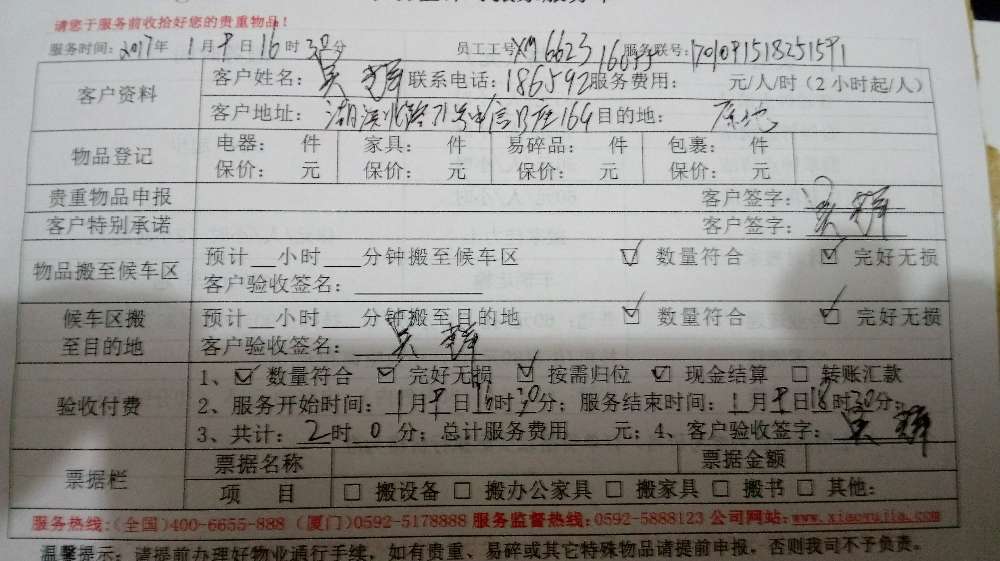 请您于服务前收拾好您的贵重物品!
服务时间: 2017年 1月9日16时30分 员工工号 XM6623 服务联号: 1701091518251591
客户资料 客户姓名: 吴 联系电话: 186592 服务费用: 元/人/时(2小时起/人)
客户地址: 湖滨北路71号中信B座164 目的地: 原地
物品登记 电器: 件 家具: 件 易碎品: 件 包裹: 件
保价: 元 保价: 元 保价: 元 保价: 元
贵重物品申报 客户签字: 吴
客户特别承诺 客户签字:
物品搬至候车区 预计__小时___分钟搬至候车区 ☑ 数量符合 ☑ 完好无损
客户验收签名:
候车区搬至目的地 预计__小时___分钟搬至目的地 ☑ 数量符合 ☑ 完好无损
客户验收签名: 吴
验收付费 1、☑ 数量符合 ☑ 完好无损 ☑ 按需归位 ☑ 现金结算 □ 转账汇款
2、服务开始时间: 1月9日16时30分; 服务结束时间: 1月9日18时30分;
3、共计: 2时 0分; 总计服务费用___元; 4、客户验收签字: 吴
票据栏 票据名称 票据金额
项 目 □ 搬设备 □ 搬办公家具 □ 搬家具 □ 搬书 □ 其他:
服务热线:(全国)400-6655-888 (厦门)0592-5178888 服务监督热线:0592-5888123 公司网站: www.xiaoyujia.com
温馨提示: 请提前办理好物业通行手续, 如有贵重、易碎或其它特殊物品请提前申报, 否则我司不予负责。